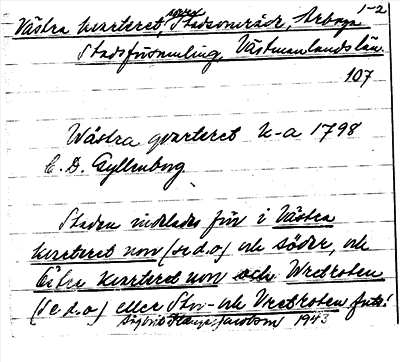 1-2
Västra kvarteret, Stadsområde, Arboga
Stadsförsamling, Västmanlands län
107
Wästra qvarteret K-a 1798
C. D. Gyllenborg
Staden indelades förr i Västra
kvarteret norr (se d.o) och söder, och
Östra kvarteret norr och Wretroten
(se d.o) eller Stor- och Vretroten
1943